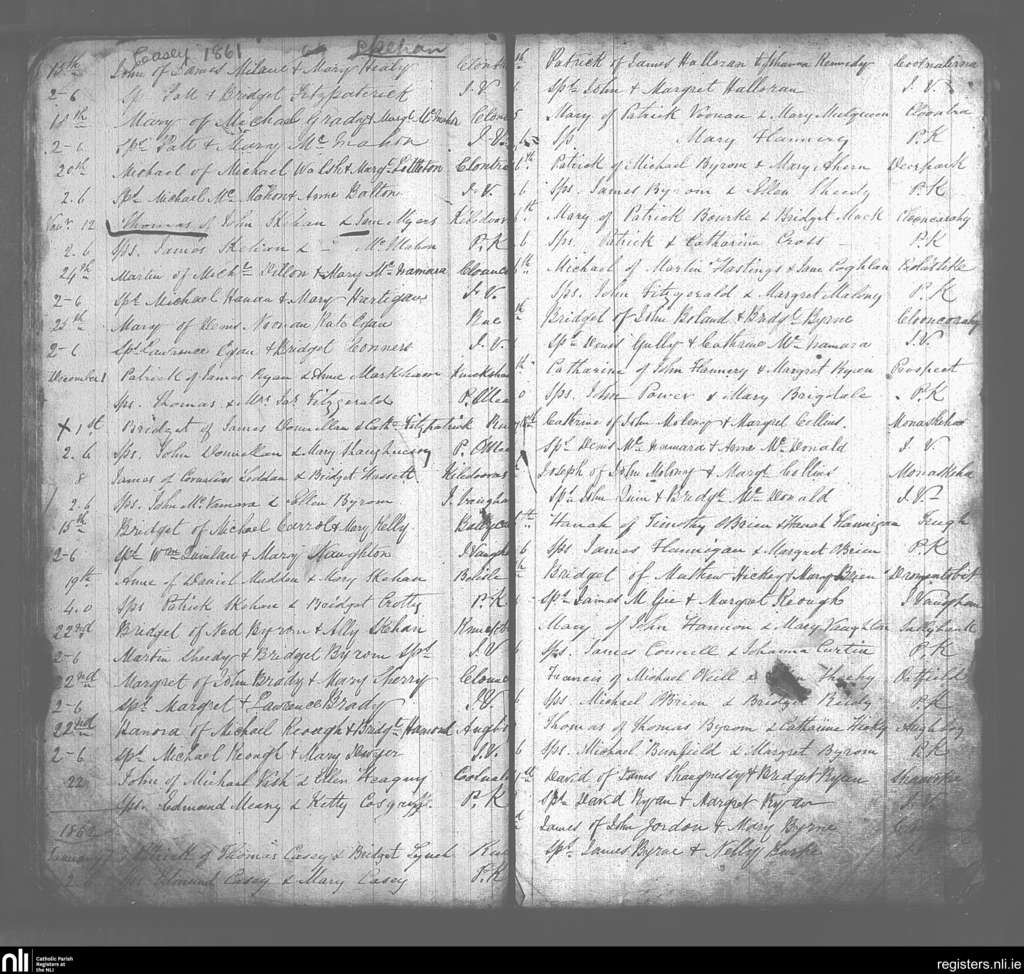 Casey 1861 Skehan
15th John of James Milane & Mary Healy Clont
2-6 Sp. Patt & Bridget Fitzpatrick J.V.
18th Mary of Michael Grady & Margt McMahon Clon
2-6 Sps. Patt & Mary McMahon J.V.
20th Michael of Michael Walsh & Margt Clontra
2.6 Sps. Michael McMahon & Anne Dalton J.V.
Novr. 12 Thomas of John Skehan & Jane Myers Kildoor
2.6 Sps. James Skehan & McMahon P.K
24th Martin of Michl Dillon & Mary McNamara Clonco
2-6 Sps. Michael Hanan & Mary Hartigan J.V.
25th Mary of Denis Noonan Kate Egan Rue
2-6 Sps. Lawrence Egan & Bridget Conners J.V
December 1 Patrick of James Ryan & Anne
Sps. Thomas & Mrs Jas. Fitzgerald P.
X 1st Bridget of James Donnellan & Cath. Fitzpatrick
2.6 Sps. John Donnellan & Mary Shaughnessy P.
8 James of Liddan & Bridget Hassett Kildoor
2.6 Sps. John McNamara & Ellen Byrom J. Vaughan
15th Bridget of Michael Carrol & Mary Kelly Ballyca
2-6 Sps. Wm Quinlan & Mary Naughton J Vaugh
19th Anne of Daniel Madden & Mary Skehan Belisle
4.0 Sps Patrick Skehan & Bridget Crotty P.K
22nd Bridget of Ned Byrom & Ally Skehan
2-6 Martin Sheedy & Bridget Byrom Sps. J.V
22nd Margret of John Brady & Mary Sherry Clone
2-6 Sps. Margret & Lawrence Brady J.V.
22nd Hanora of Michael Keough & Bridgt. Hamond Aughb
2-6 Sps. Michael Keough & Mary J.V.
22 John of Michael & Ellen Heagny
Sps. Edmund Meany & Kitty Cosgay P.K
1862
January Patrick of Thomas Casey & Bridget Lynch Rue
2.6 Sps Edmund Casey & Mary Casey P.K
Patrick of James Halloran & Johanna Kennedy Coolnaherna
6 Sps. John & Margret Halloran J.V
Mary of Patrick Noonan & Mary Cloontra
Sps. Mary Flannery P.K
Patrick of Michael Byrom & Mary Ahern Deerpark
6 Sps. James Byrom & Ellen Sheedy P.K
Mary of Patrick Bourke & Bridget Mack Clooncarahy
6 Sps. Patrick & Catharine Cross P.K
Michael of Martin Hastings & Jane Coghlan
Sps. John Fitzgerald & Margret Malony P.K
Bridget of John Boland & Bridgt. Byrne Clooncarahy
Sps. Denis Gully & Catherine McNamara J.V.
Catharine of John Flannery & Margret Ryan Prospect
Sps. John Power & Mary Boigdale P.K
Cathrine of John Malony & Margret Collins. Monaskeha
Sps. Denis McNamara & Anne McDonald J.V
Joseph of John Malony & Margt. Collins Monaskeha
Sps. John Quin & Bridgt. McDonald J.V
Hanah of Timothy OBrien & Hanah Hannigan Feugh
6 Sps. James Flannigan & Margret OBrien P.K
Bridget of Mathew Hickey & Mary Ryan Dromintobit
Sps. James McGee & Margret Keough J Vaughan
Mary of John Hannon & Mary Vaughlan
6 Sps. James Connell & Johanna Curtin P.K
Francis of Michael Neill & Sheehy Oatfield
6 Sps. Michael OBrien & Bridget Reidy P.K
Thomas of Thomas Byrom & Catharine Hickey Aughboy
6 Sps. Michael Benfield & Margret Byrom P.K
David of James Shaugnessy & Bridget Ryan
Sps. David Ryan & Margret Ryan J.V.
James of John Jordon & Mary Byrne
Sps. James Byrne & Nelly
nli
Catholic Parish
Registers at
the NLI
registers.nli.ie